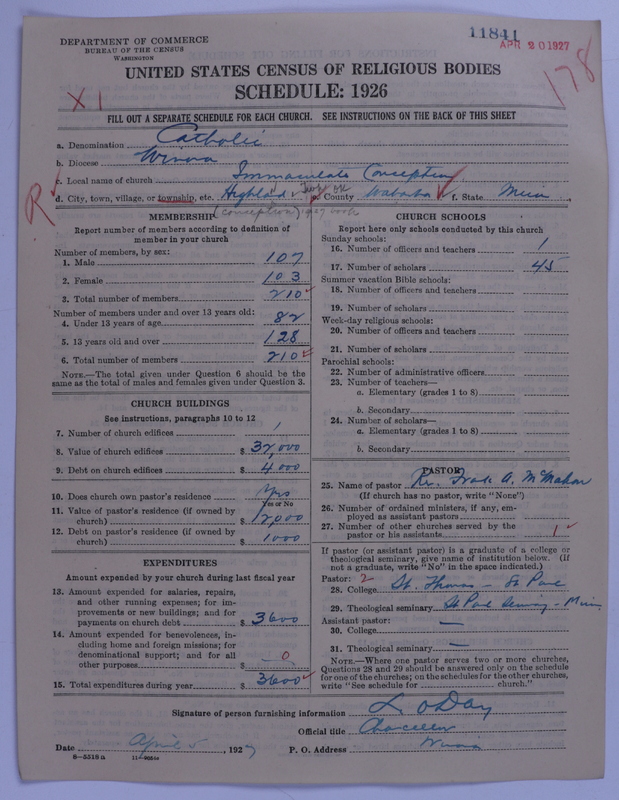 11841
APR 20 1927
178
DEPARTMENT OF COMMERCE
BUREAU OF THE CENSUS
WASHINGTON
UNITED STATES CENSUS OF RELIGIOUS BODIES
SCHEDULE: 1926
X 1
FILL OUT A SEPARATE SCHEDULE FOR EACH CHURCH. SEE INSTRUCTIONS ON THE BACK OF THIS SHEET
a. Denomination Catholic
b. Diocese Winona
c. Local name of church Immaculate Conception
R
d. City, town, village, or township, etc. Highland Twp OK e. County Wabasha f. State Minn
(Conception) 1927 book
MEMBERSHIP
Report number of members according to definition of
member in your church
Number of members, by sex:
1. Male 107
2. Female 103
3. Total number of members 210
Number of members under and over 13 years old:
4. Under 13 years of age 82
5. 13 years old and over 128
6. Total number of members 210
NOTE.—The total given under Question 6 should be the
same as the total of males and females given under Question 3.
CHURCH BUILDINGS
See instructions, paragraphs 10 to 12
7. Number of church edifices 1
8. Value of church edifices $ 32,000
9. Debt on church edifices $ 4000
10. Does church own pastor's residence Yes
Yes or No
11. Value of pastor's residence (if owned by
church) $ 12000
12. Debt on pastor's residence (if owned by
church) $ 1000
EXPENDITURES
Amount expended by your church during last fiscal year
13. Amount expended for salaries, repairs,
and other running expenses; for im-
provements or new buildings; and for
payments on church debt $ 3600
14. Amount expended for benevolences, in-
cluding home and foreign missions; for
denominational support; and for all
other purposes $ 0
15. Total expenditures during year $ 3600
CHURCH SCHOOLS
Report here only schools conducted by this church
Sunday schools:
16. Number of officers and teachers 1
17. Number of scholars 45
Summer vacation Bible schools:
18. Number of officers and teachers
19. Number of scholars
Week-day religious schools:
20. Number of officers and teachers
21. Number of scholars
Parochial schools:
22. Number of administrative officers
23. Number of teachers—
a. Elementary (grades 1 to 8)
b. Secondary
24. Number of scholars—
a. Elementary (grades 1 to 8)
b. Secondary
PASTOR
25. Name of pastor Rev. A. McMahon
(If church has no pastor, write "None")
26. Number of ordained ministers, if any, em-
ployed as assistant pastors
27. Number of other churches served by the
pastor or his assistants 1
If pastor (or assistant pastor) is a graduate of a college or
theological seminary, give name of institution below. (If
not a graduate, write "No" in the space indicated.)
Pastor: 2
28. College St. Thomas - St Paul
29. Theological seminary St Paul Seminary - Minn
Assistant pastor:
30. College —
31. Theological seminary —
NOTE.—Where one pastor serves two or more churches,
Questions 28 and 29 should be answered only on the schedule
for one of the churches; on the schedules for the other churches,
write "See schedule for church."
Signature of person furnishing information L O Day
Official title Chancellor
Date April 5, 1927 P. O. Address Winona
8-5518a 11-9054a